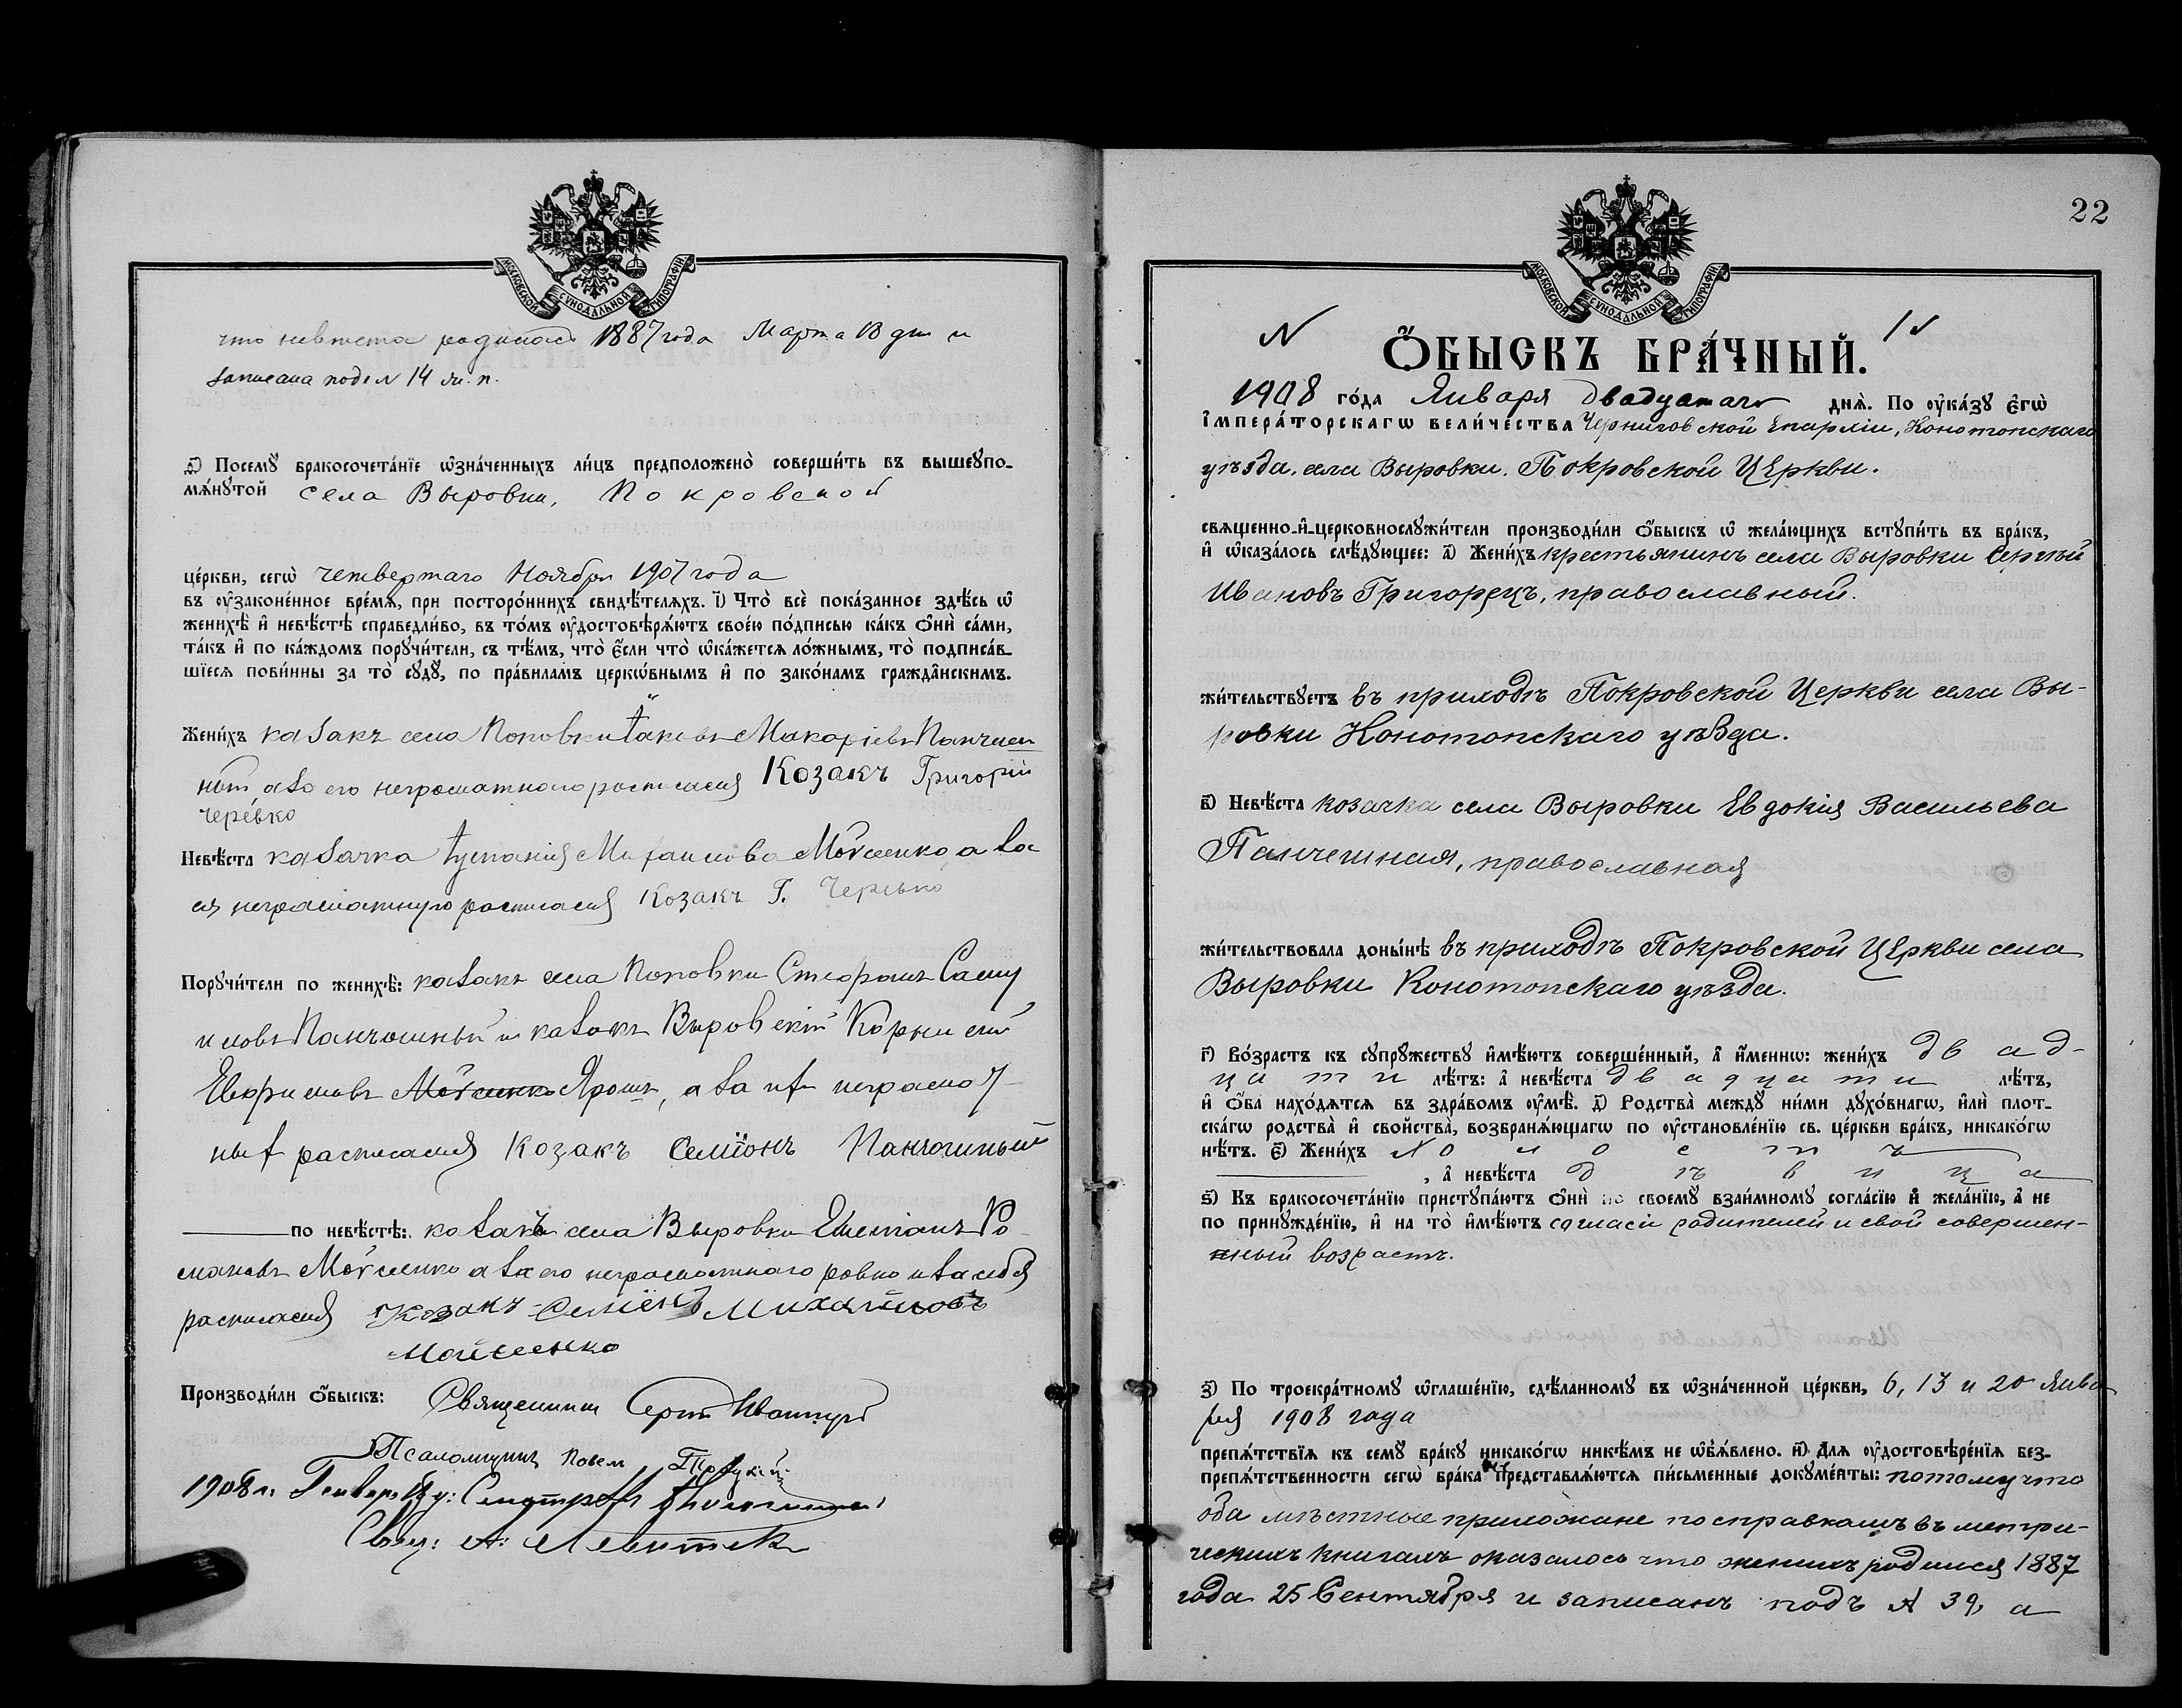 МОСКОВСКОЙ СѴНОДАЛЬНОЙ ТИПОГРАФІИ
что невѣста родилась 1887 года Марта 13 дня и
записана подъ N 14 ж. п.
д҃) Посемꙋ̀ бракосочета́нїе ѡ҆зна́ченныхъ ли́цъ предположено̀ соверши́ть въ вышеꙋпо-
мѧ́нꙋтой села Выровки, Покровской
це́ркви, сегѡ̀ четвертаго Ноября 1907 года
въ ᲂу҆законе́нное вре́мѧ, при посторо́ннихъ свидѣ́телѧхъ. і҃) Что̀ всѐ пока́занное здѣ́сь ѡ҆
женихѣ̀ и҆ невѣ́стѣ справедли́во, въ то́мъ ᲂу҆достовѣрѧ́ютъ свое́ю по́дписью ка́къ ѻ҆нѝ са́ми,
та́къ и҆ по ка́ждомъ порꙋчи́тели, съ тѣ́мъ, что̀ є҆́сли что̀ ѡ҆ка́жетсѧ ло́жнымъ, то̀ подписа́в-
шїесѧ пови́нны за то̀ сꙋдꙋ̀, по пра́виламъ церкѡ́внымъ и҆ по зако́намъ гражда̑нскимъ.
Жени́хъ казакъ села Поповки Іаковъ Макаріевъ Панчеш
ный а за его неграмотнаго росписался Козакъ Григорій
Черевко
Невѣ́ста казачка Михаилова Мойсенко а за
ея неграмотную расписался Козакъ Г. Черевко
Порꙋчи́тели по женихѣ̀: казакъ села Поповки Стефанъ Саму
иловъ Панчошный и казакъ Выровскій Корнилій
Евфимовъ Мойсенко Ярошъ, а за ихъ неграмот
ныхъ расписался Козакъ Семіонъ Панчошный
по невѣ́стѣ: казакъ села Выровки Ро
мановъ Мойсенко а за его неграмотнаго ровно и за себя
расписался Козакъ Семіенъ Михайловъ
Мойсенко
Производи́ли ѻ҆́быскъ: Священникъ
Псаломщикъ Павелъ
1908 г.
Свящ: А: Левитск
22
МОСКОВСКОЙ СѴНОДАЛЬНОЙ ТИПОГРАФІИ
N 1
Ѻ҆́БЫСКЪ БРА́ЧНЫЙ.
1908 го́да Января двадцатаго днѧ̀. По ᲂу҆ка́зꙋ є҆гѡ̀
і҆мпера́торскагѡ вели́чества Черниговской Епархіи, Конотопскаго
уѣзда, села Выровки, Покровской Церкви.
свѧщенно-и҆-церковнослꙋжи́тели производи́ли ѻ҆́быскъ ѡ҆ жела́ющихъ вступи́ть въ бра́къ,
и҆ ѡ҆каза́лось слѣ́дꙋющее: а҃) Жени́хъ крестьянинъ села Выровки Сергѣй
Ивановъ Григорецъ, православный.
жи́тельствꙋетъ въ приходѣ Покровской Церкви села Вы-
ровки Конотопскаго уѣзда.
в҃) Невѣ́ста козачка села Выровки Евдокія Васильева
Панчешная, православная
жи́тельствовала доны́нѣ въ приходѣ Покровской Церкви села
Выровки Конотопскаго уѣзда.
г҃) Во́зрастъ къ сꙋпрꙋ́жествꙋ и҆мѣ́ютъ соверше́нный, а҆ и҆́меннѡ: жени́хъ двад-
цати лѣ́тъ: а҆ невѣ́ста двадцати лѣ́тъ,
и҆ ѻ҆́ба нахо́дѧтсѧ въ здра́вомъ ᲂу҆мѣ̀. д҃) Родства̀ междꙋ̀ ни́ми дꙋхо́внагѡ, и҆лѝ плот-
ска́гѡ родства̀ и҆ сво́йства̀, возбранѧ́ющагѡ по ᲂу҆становле́нїю св. це́ркви бра́къ, никако́гѡ
нѣ́тъ. є҃) Жени́хъ холостъ
, а҆ невѣ́ста дѣвица
ѕ҃) Къ бракосочета́нїю пристꙋпа́ютъ ѻ҆нѝ по своемꙋ̀ взаи́мномꙋ согла́сїю и҆ жела́нїю, а҆ не
по принꙋжде́нїю, и҆ на то̀ и҆мѣ́ютъ согласіи родителей и свой совершен-
нный возрастъ.
з҃) По троекра́тномꙋ ѡ҆глаше́нїю, сдѣ́ланномꙋ въ ѡ҆зна́ченной це́ркви, 6, 13 и 20 Янва
ря 1908 года
препѧ́тствїѧ къ семꙋ̀ бра́кꙋ никако́гѡ никѣ́мъ не ѡ҆б̾ѧ́влено. и҃) Длѧ ᲂу҆достовѣре́нїѧ без-
препѧ́тственности сегѡ̀ бра́ка не представлѧ́ютсѧ пи́сьменные докꙋме́нты: потому что
оба мѣстные прихожане по справкамъ въ метри-
ческихъ книгахъ оказалось что женихъ родился 1887
года 25 Сентября и записанъ подъ N 39, а